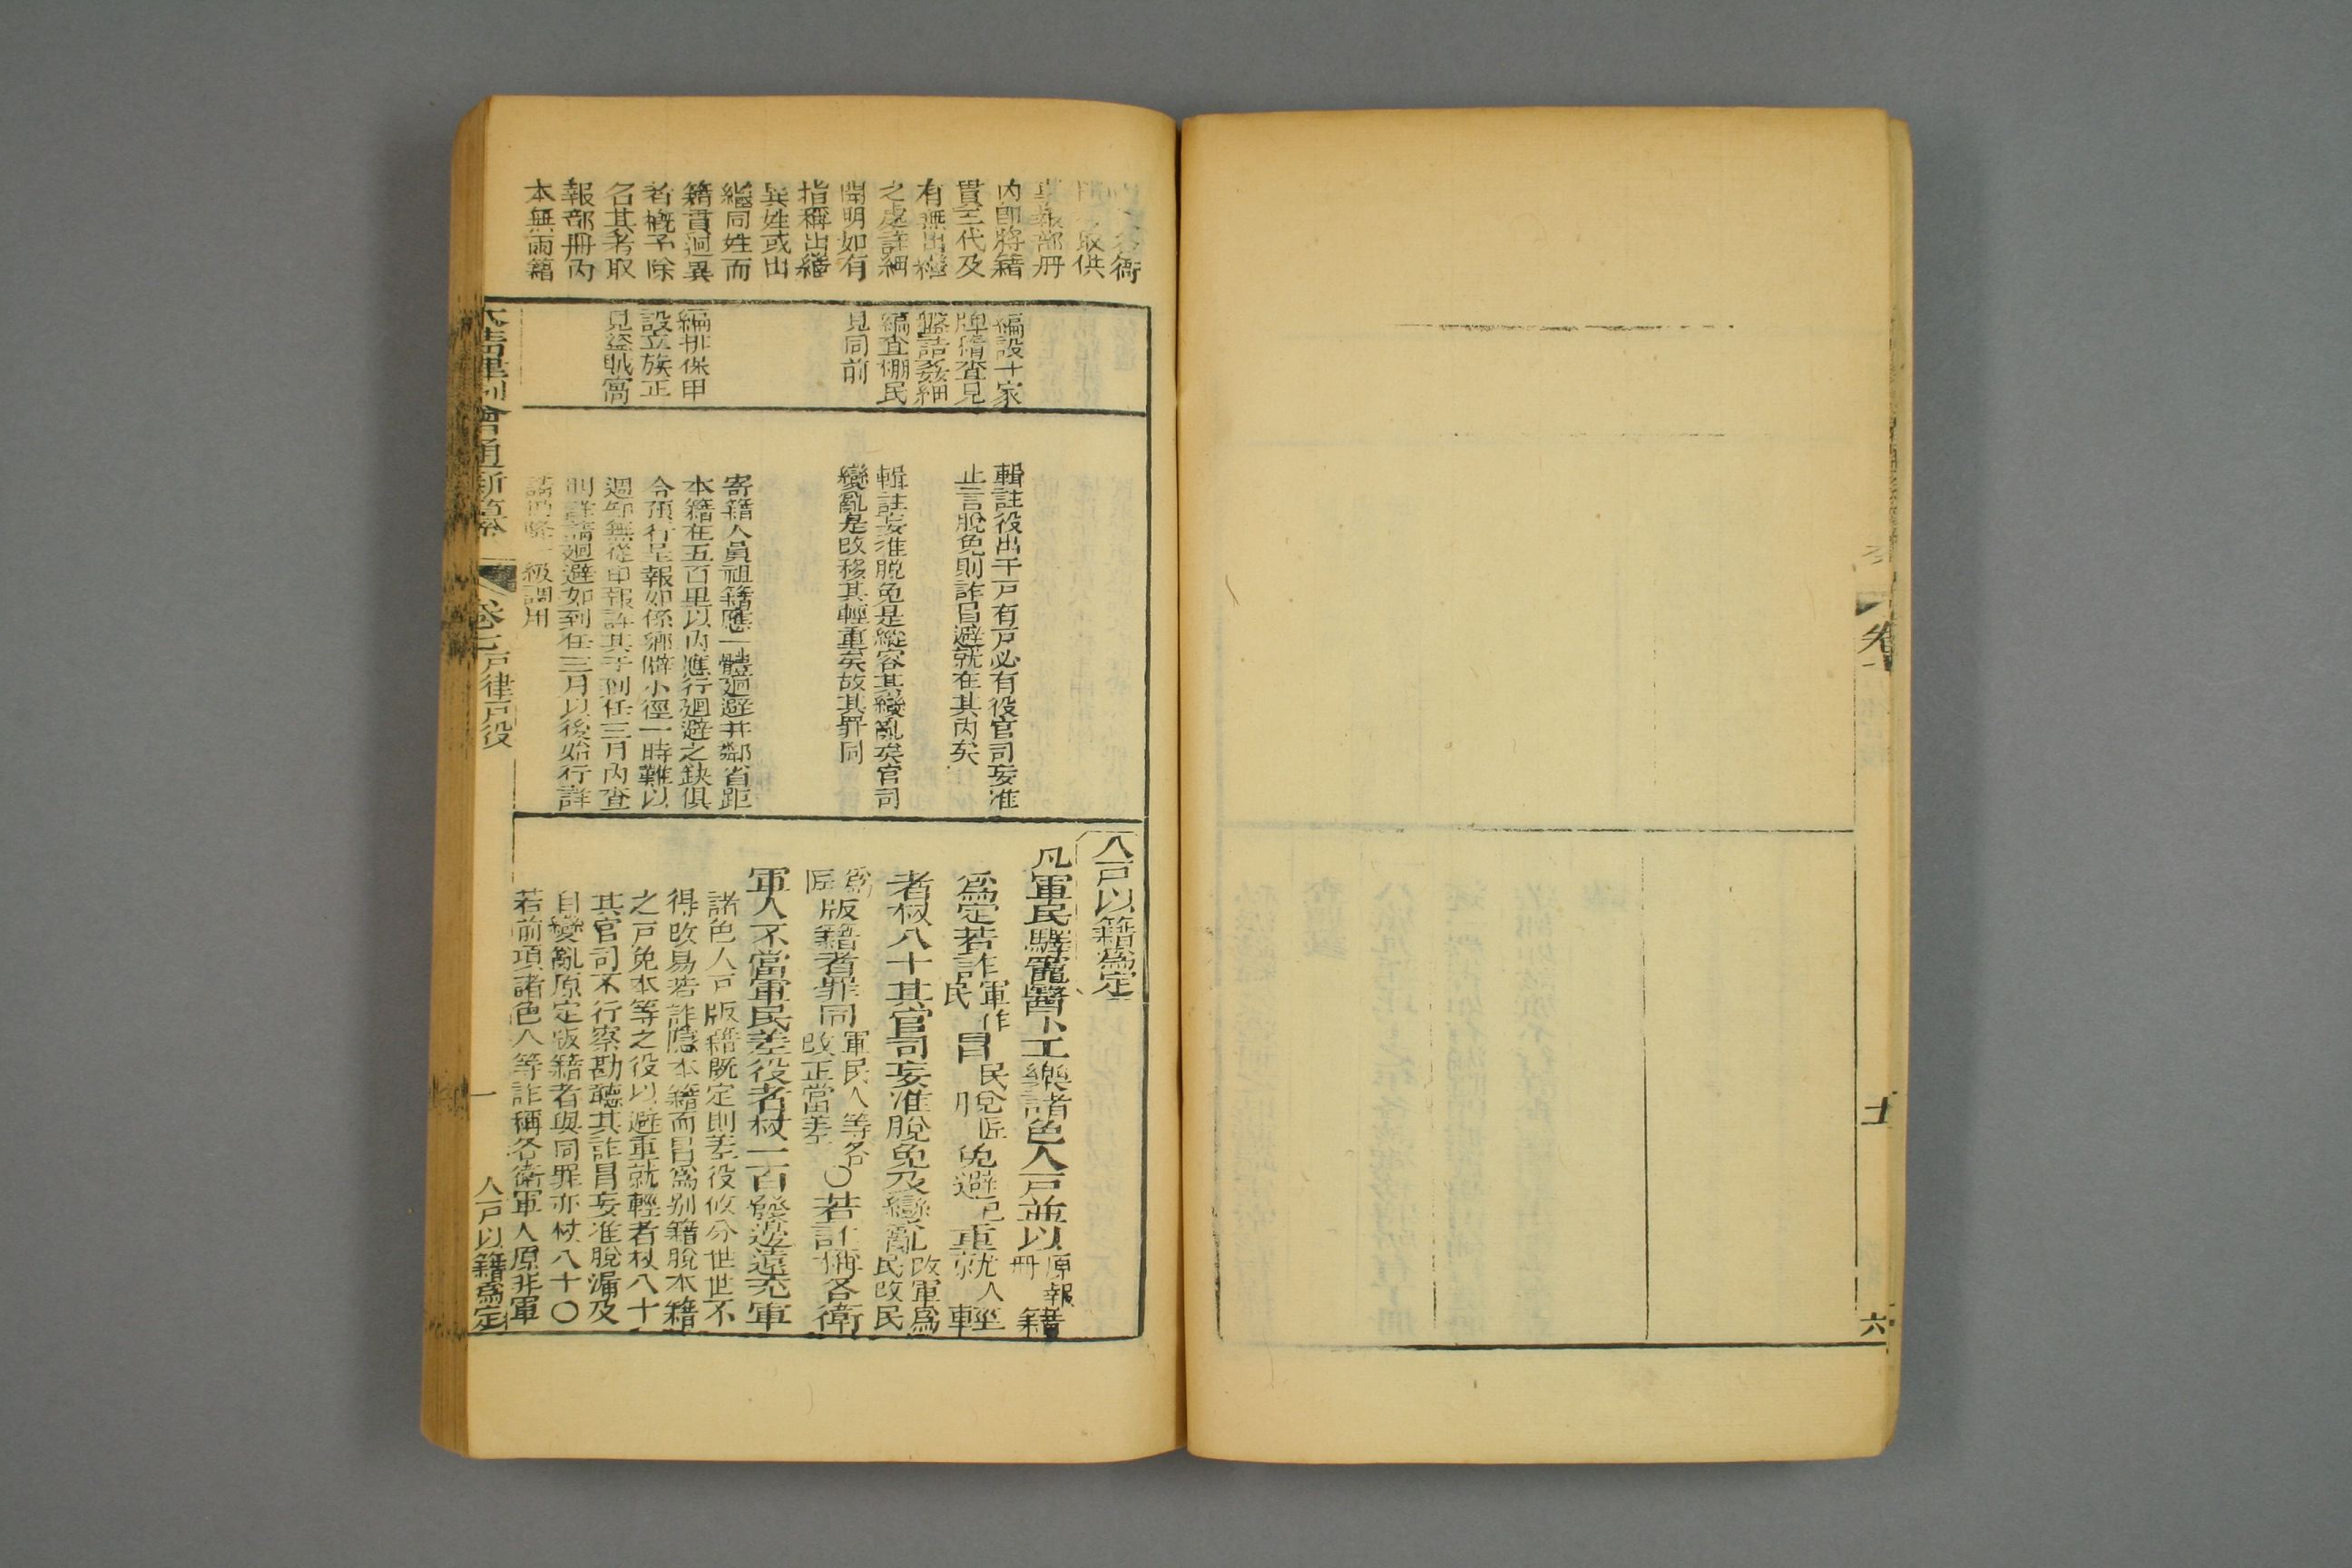 卷
士
六
取供
報部冊
內卽將籍
貫三代及
有無出繼
之處詳細
開明如有
指稱出繼
異姓或出
繼同姓而
籍貫迥異
者概予除
名其考取
報部冊內
本無兩籍
編設十家
牌循查見
盤詰姦細
編查棚民
見同前
編排保甲
設立族正
見盜賊窩
輯註役出于戶有戶必有役官司妄准
止言脫免則詐冒避就在其內矣
輯註妄准脫免是縱容其變亂矣官司
變亂是改移其輕重矣故其罪同
寄籍人員祖籍應一體廻避并鄰省距
本籍在五百里以內應行廻避之缺俱
令預行呈報如係鄉僻小徑一時難以
週知無從申報許其于到任三月內查
明詳請廻避如到任三月以後始行詳
請 級調用
人戶以籍爲定
凡軍民驛竈醫卜工樂諸色人戶並以原報冊籍
爲定若詐軍作民冒民脫匠免避己重就人輕
者杖八十其官司妄准脫免及變亂改軍爲民改民
爲匠版籍者罪同軍民人等各改正當差〇若詐稱各衛
軍人不當軍民差役者杖一百發邊遠充軍
諸色人戶版籍旣定則差役攸分世世不
得改易若詐隱本籍而冒爲别籍脫本籍
之戶免本等之役以避重就輕者杖八十
其官司不行察勘聽其詐冒妄准脫漏及
自變亂原定版籍者與同罪亦杖八十〇
若前項諸色人等詐稱各衛軍人原非軍
大清律例會通新纂
卷
戶律戶役
一
人戶以籍爲定